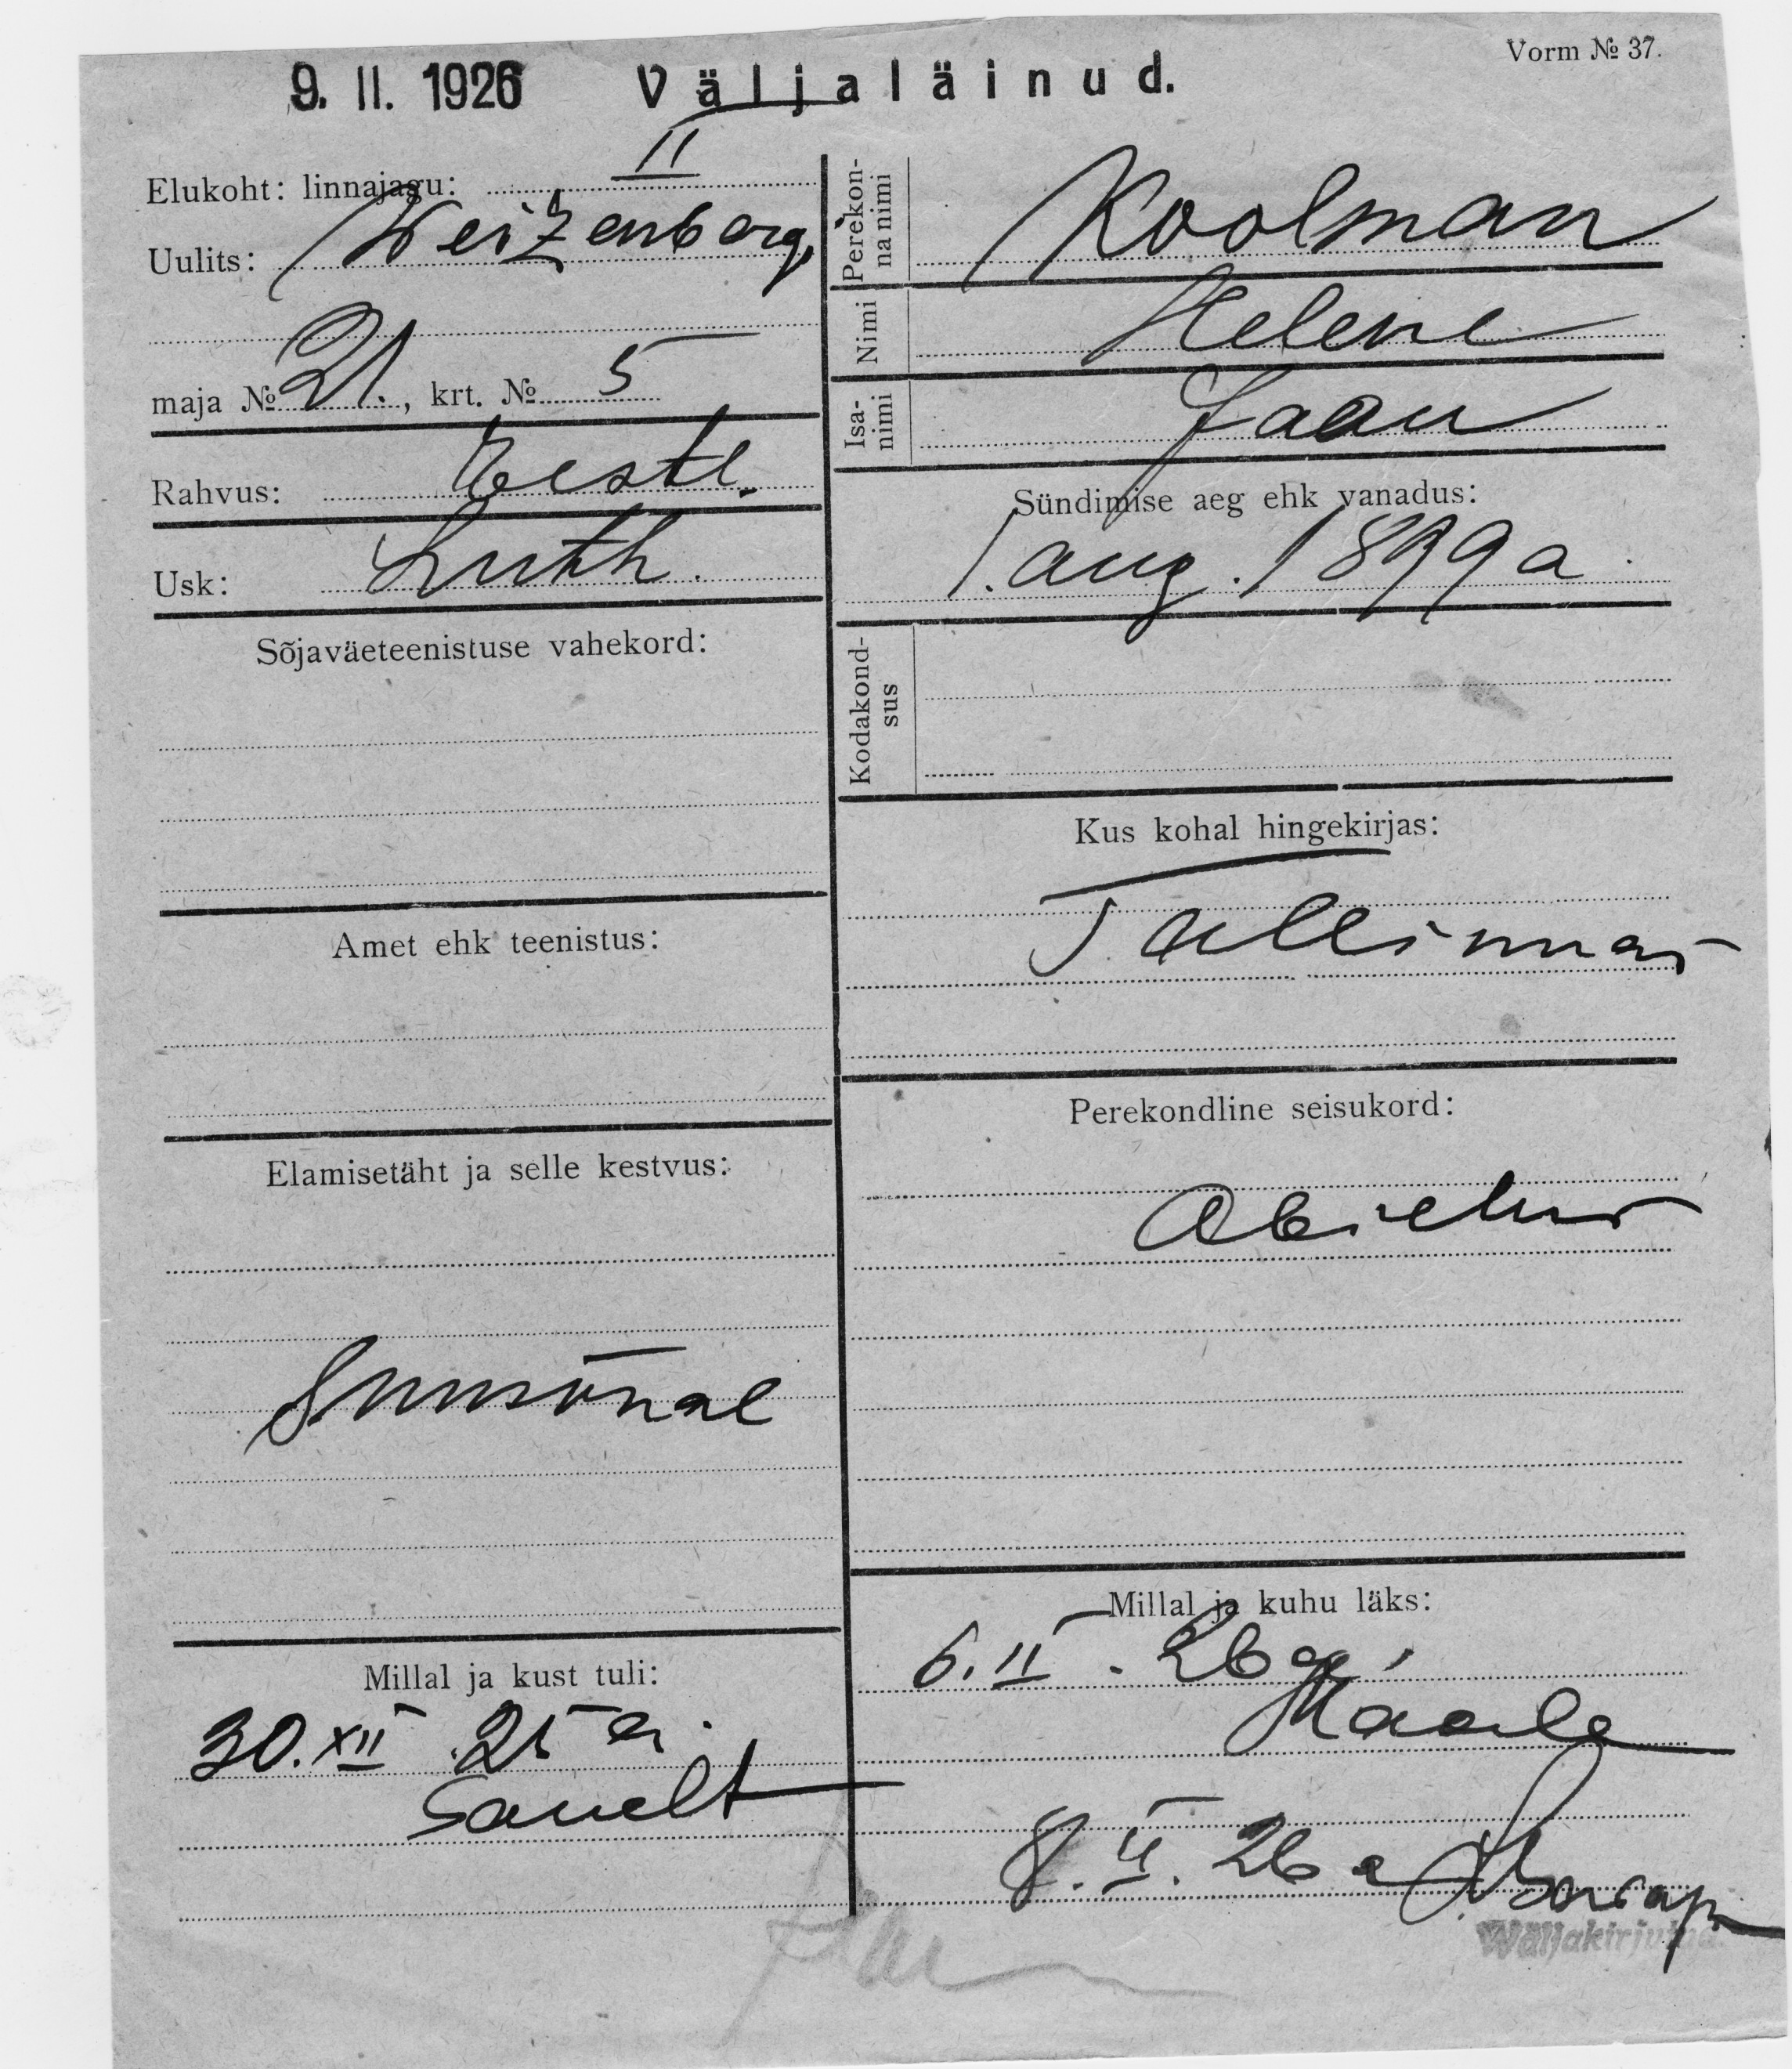 Vorm № 37.
9. II. 1926 Väljaläinud.
Elukoht: linnajagu: II
Uulits: Weizenberg,
maja № 21., krt. № 5
Rahvus: Eestl.
Usk: Luth.
Sõjaväeteenistuse vahekord:
Amet ehk teenistus:
Elamisetäht ja selle kestvus:
Millal ja kust tuli:
30. XII. 25 a.
Sauelt
Perekonna nimi Koolman
Nimi Helene
Isanimi Jaan
Sündimise aeg ehk vanadus:
1. aug. 1899 a.
Kodakondsus
Kus kohal hingekirjas:
Tallinnas
Perekondline seisukord:
Abielus
Millal ja kuhu läks:
6. II. 26 a.
Maale
8. II. 26 a
Wäljakirjutud.